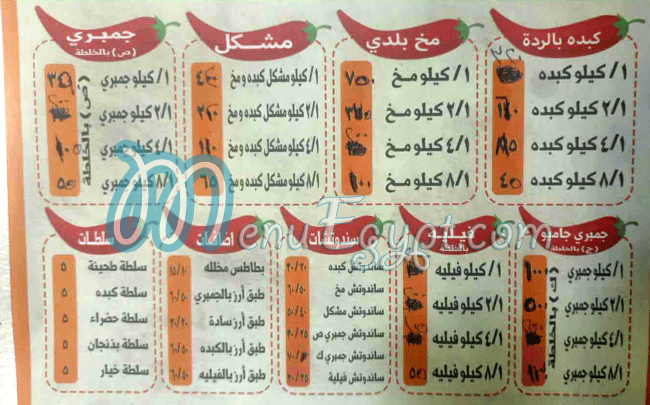 كبده بالردة
١/ كيلو كبده
٢/١ كيلو كبده
٤/١ كيلو كبده
٨/١ كيلو كبده ٤٥
مخ بلدي
١/ كيلو مخ ٧٥٠
٢/١ كيلو مخ
٤/١ كيلو مخ
٨/١ كيلو مخ ١٠٠
مشكل
١/ كيلو مشكل كبده ومخ
٢/١ كيلو مشكل كبده ومخ
٤/١ كيلو مشكل كبده ومخ
٨/١ كيلو مشكل كبده ومخ ٦٥
جمبري
(ص) بالخلطة
١/ كيلو جمبري ٣٥٠
٢/١ كيلو جمبري
٤/١ كيلو جمبري ١٠٠
٨/١ كيلو جمبري ٥٥
(ص) بالخلطة
MenuEgypt.com
جمبري جامبو
(ج) بالخلطة
١/ كيلو جمبري
٢/١ كيلو جمبري
٤/١ كيلو جمبري
٨/١ كيلو جمبري
(ك) بالخلطة
فيليه
بالخلطة
١/ كيلو فيليه
٢/١ كيلو فيليه
٤/١ كيلو فيليه
٨/١ كيلو فيليه
سندوتشات
ساندوتش كبده ٣٠/٢٠
ساندوتش مخ ٦٠/٥٠
ساندوتش مشكل ٥٠/٤٠
ساندوتش جمبري ص ٣٥/٢٥
ساندوتش جمبري ك
ساندوتش فيلية ٣٥/٢٥
اضافات
بطاطس مخلله ١٥/١٠
طبق أرز بالجمبري ٦٠/٥٠
طبق أرز سادة ٣٠/٢٠
طبق أرز بالكبده ٦٠/٥٠
طبق أرز بالفيليه ٦٠/٥٠
سلطات
سلطة طحينة ٥
سلطة كبده ٥
سلطة حضراء ٥
سلطة بدنجان ٥
سلطة خيار ٥